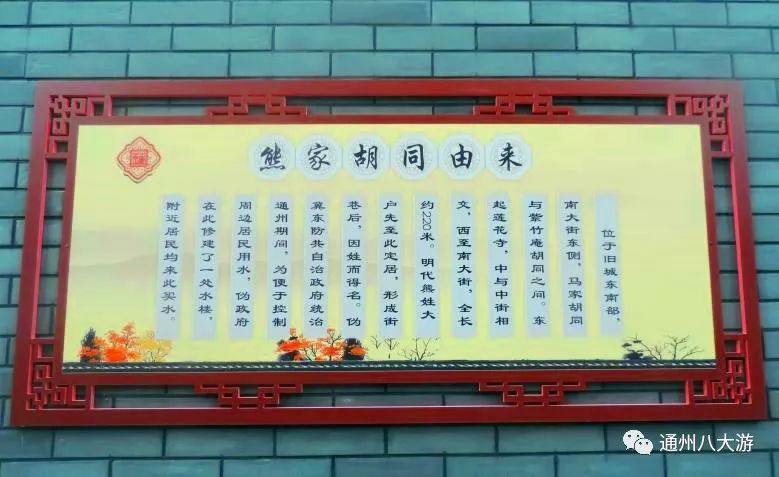 熊家胡同由来
位于旧城东南部，
南大街东侧，马家胡同
与紫竹庵胡同之间。东
起莲花寺，中与中街相
交，西至南大街，全长
约220米。明代熊姓大
户先至此定居，形成街
巷后，因姓而得名。伪
冀东防共自治政府统治
通州期间，为便于控制
周边居民用水，伪政府
在此修建了一处水楼，
附近居民均来此买水。
通州八大游